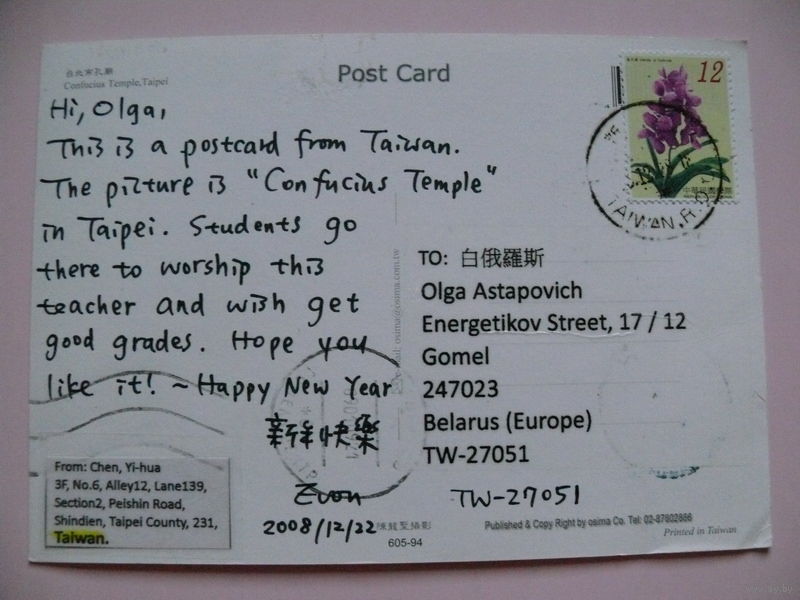 台北市孔廟
Confucius Temple,Taipei
Post Card
12
中華民國郵票
TAIWAN.R.O.
Hi, Olga,
This is a postcard from Taiwan.
The picture is "Confucius Temple"
in Taipei. Students go
there to worship this
teacher and wish get
good grades. Hope you
like it! ~Happy New Year
新年快樂
Evon
2008/12/22
陳龍聖攝影
605-94
From: Chen, Yi-hua
3F, No.6, Alley12, Lane139,
Section2, Peishin Road,
Shindien, Taipei County, 231,
Taiwan.
osima@osima.com.tw
TO: 白俄羅斯
Olga Astapovich
Energetikov Street, 17 / 12
Gomel
247023
Belarus (Europe)
TW-27051
TW-27051
Published & Copy Right by osima Co. Tel: 02-87802866
Printed in Taiwan